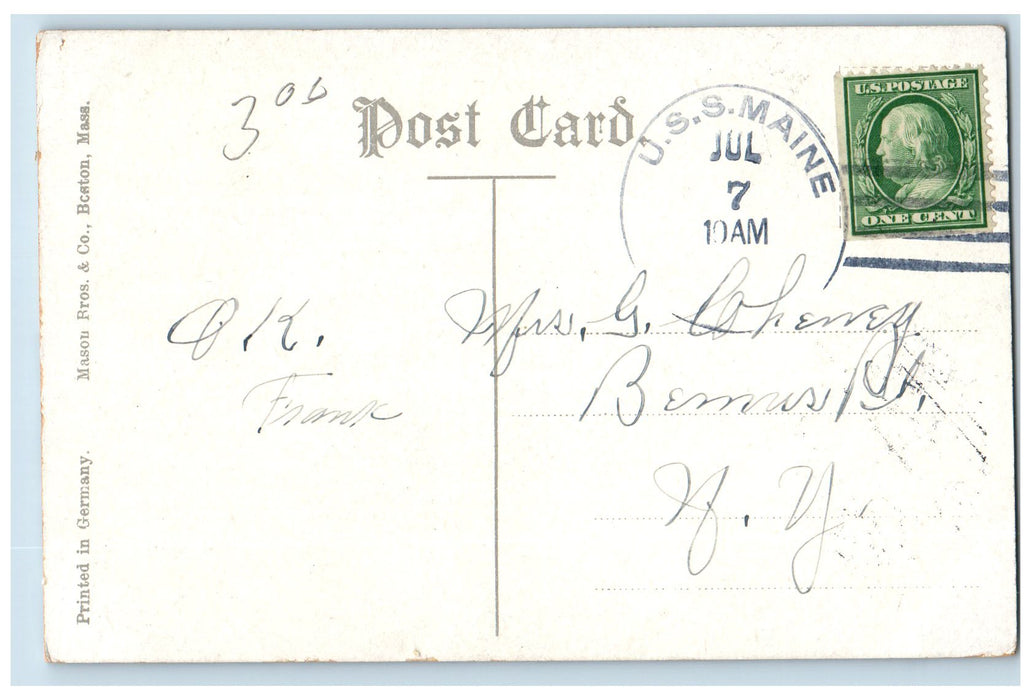 3 00
Post Card
U.S.S. MAINE
JUL
7
10 AM
U.S. POSTAGE
ONE CENT
Mason Bros. & Co., Boston, Mass.
Printed in Germany.
O.K.
Frank
Mrs. G. Cheney
Bemus Pt.
N. Y.